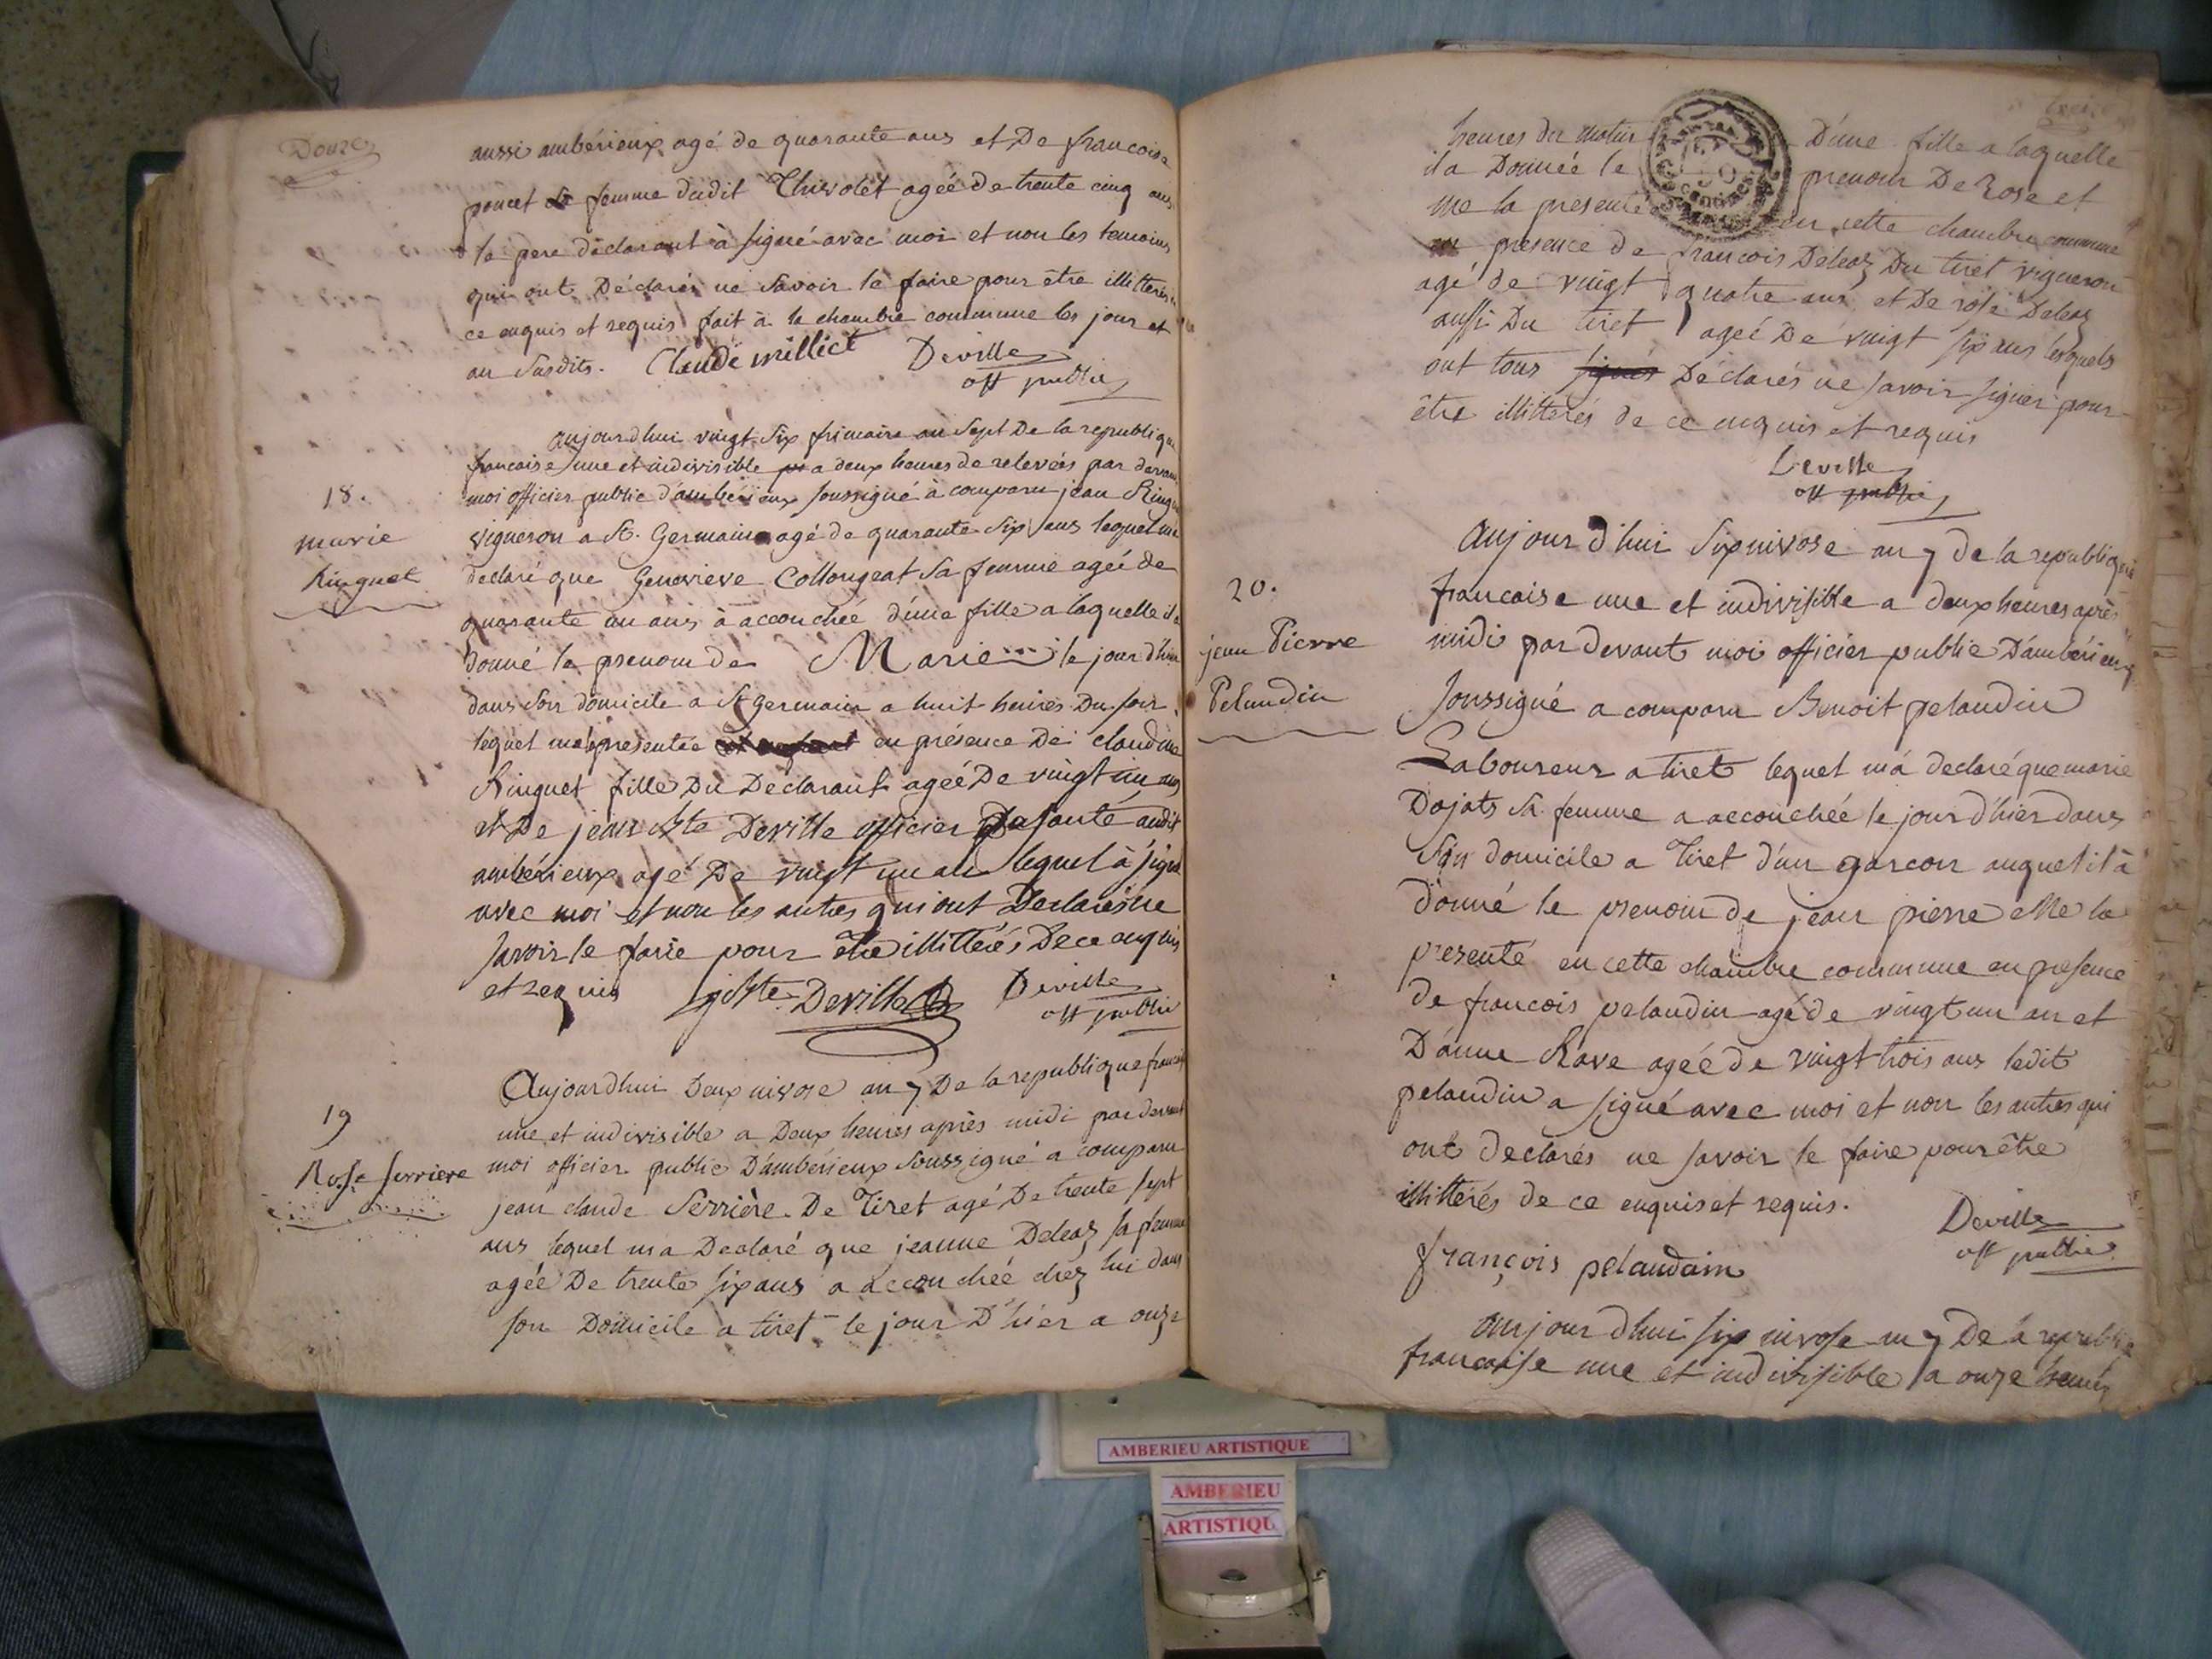 Douze
aussi ambérieux agé de quarante ans et De francoise
poncet sa femme dudit Thivolet agée de trente cinq ans
le pere déclarant à signé avec moi et non les temoins
qui ont Déclarés ne Savoir le faire pour être illitterés
ce enquis et requis fait à la chambre commune les jour et
an Susdits. Claude milliet Deville
off public
aujourdhui vingt Six frimaire an Sept De la republique
francaise une et indivisible a deux heures de relevées par devant
18. moi officier public d'ambérieux soussigné à comparu jean Ringuet
marie vigneron a St. Germain agé de quarante Six ans lequel m'a
Ringuet declaré que Genevieve Collongeat Sa femme agée de
quarante un ans à accouchée d'une fille a laquelle il a
donné le prenom de Marie le jour d'hier
dans son domicile a St germain a huit heures Du soir
lequel ma presentée en présence De claudine
Ringuet fille Du Declarant agée De vingt un ans
et De jean Bte Deville officier De santé audit
ambérieux agé De vingt un an lequel à signé
avec moi et non les autres qui ont Declarés ne
savoir le faire pour être illitterés De ce enquis
et requis jBte Deville Deville
off public
Aujourdhui Deux nivose an 7 De la republique francaise
une et indivisible a Deux heures après midi par devant
19 moi officier public D'ambérieux Soussigné a comparu
Rose serriere jean claude Serrière De Tiret agé De trente sept
ans lequel m'a Declaré que jeanne Deleaz sa femme
agée De trente six ans a accouchée chez lui dans
son Domicile a tiret le jour D'hier a onze
heures du matin D'une fille a laquelle
il a Donnée le prenom De Rose et
me la presente en cette chambre commune
en presence de francois Deleaz Du tiret vigneron
agé de vingt quatre ans et De rose Deleaz
aussi Du tiret agée De vingt six ans lesquels
ont tous signés Déclarés ne savoir signer pour
être illitterés de ce enquis et requis
Deville
off public
Aujourd'hui Six nivose an 7 de la republique
20. francaise une et indivisible a deux heures après
jean Pierre midi par devant moi officier public D'ambérieux
Pelaudin soussigné a comparu Benoit pelaudin
Laboureur a tiret lequel m'a declaré que marie
Dojats sa femme a accouchée le jour d'hier dans
Son domicile a Tiret d'un garcon auquel il à
donné le prenom de jean pierre et le
presenté en cette chambre commune en presence
de francois pelaudin agé de vingt un an et
D'anne Rave agée de vingt trois ans ledit
pelaudin a signé avec moi et non les autres qui
ont declarés ne savoir le faire pour être
illitterés de ce enquis et requis.
françois pelaudain Deville
off public
Aujourdhui six nivose an 7 De la republique
francaise une et indivisible a onze heures
AMBERIEU ARTISTIQUE
AMBERIEU
ARTISTIQU